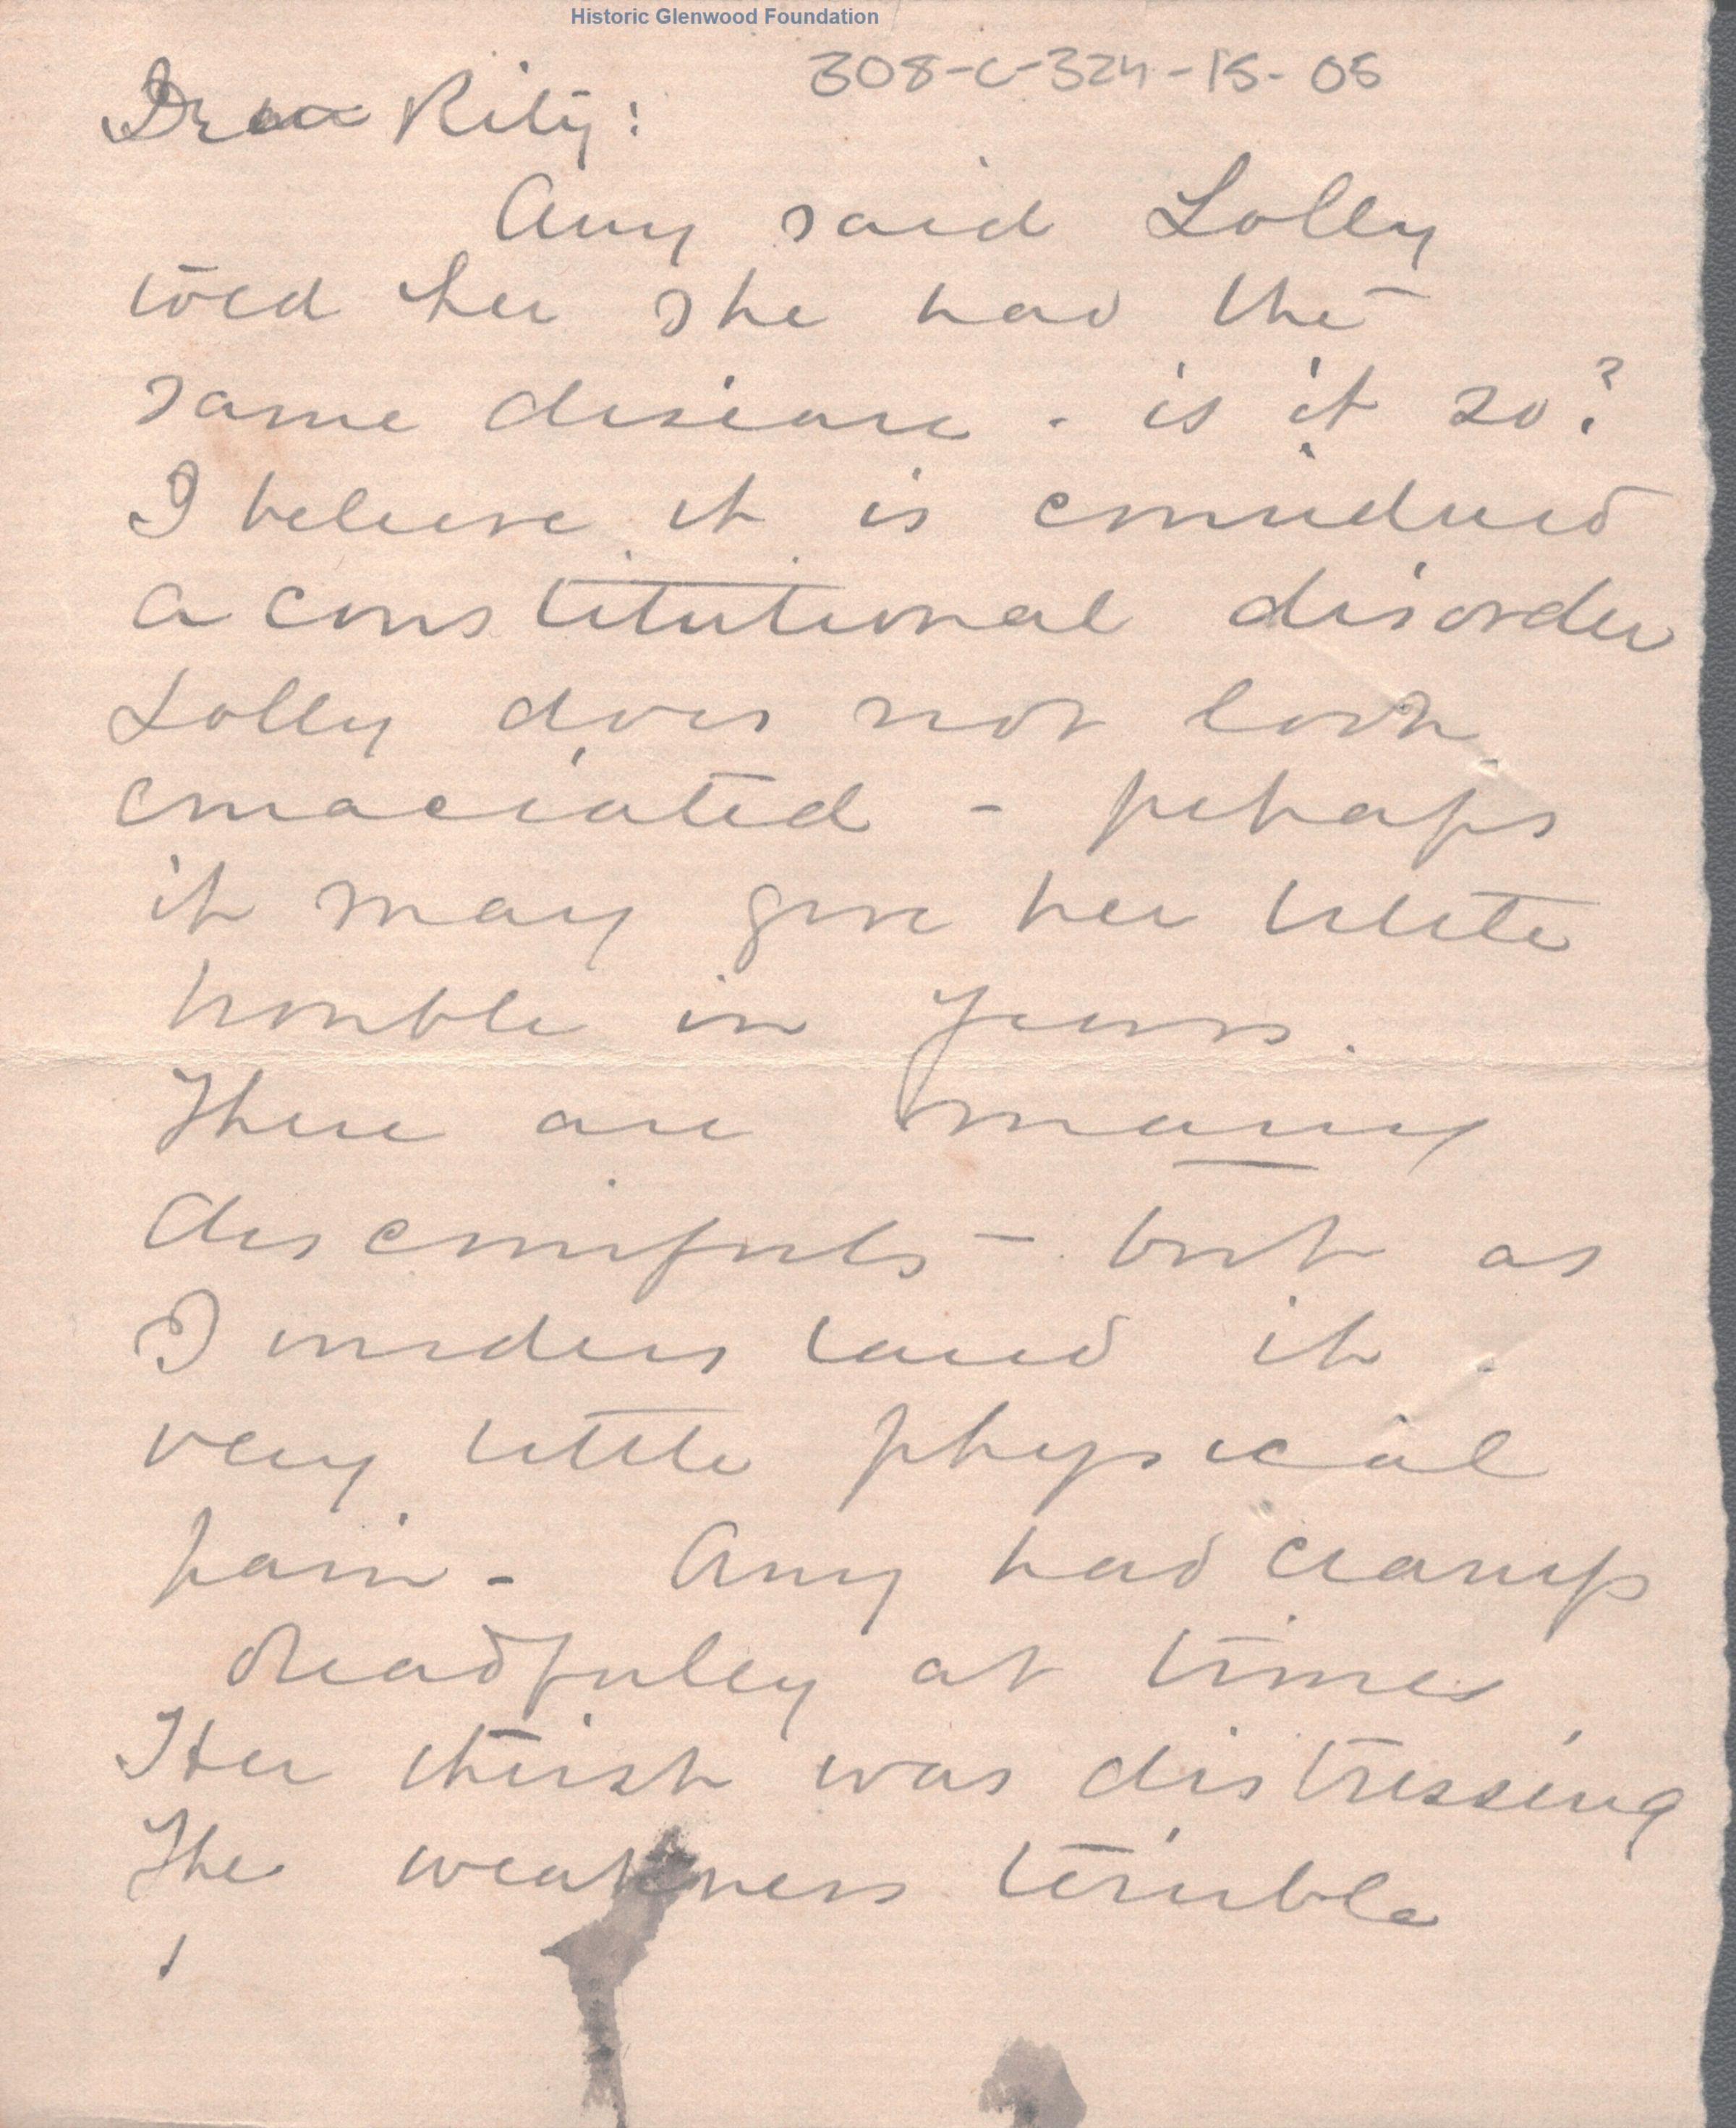 Historic Glenwood Foundation
308-C-324-15-05
Dear Rity:
Amy said Lolly
told her she had the
same disease - is it so?
I believe it is considered
a constitutional disorder
Lolly does not look
emaciated - perhaps
it may give her little
trouble in years.
There are many
discomforts - but as
I understand it.
very little physical
pain - Amy had cramps
dreadfully at times
Her thirst was distressing
The weakness terrible